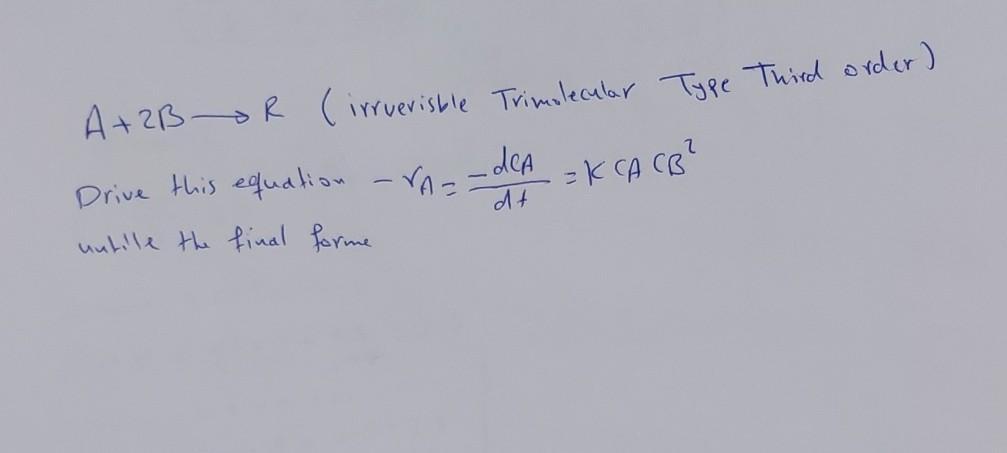 A+2B → R (irruerisble Trimolecular Type Third order)
Drive this equation -rA = -dCA/dt = K CA CB²
untille the final forme